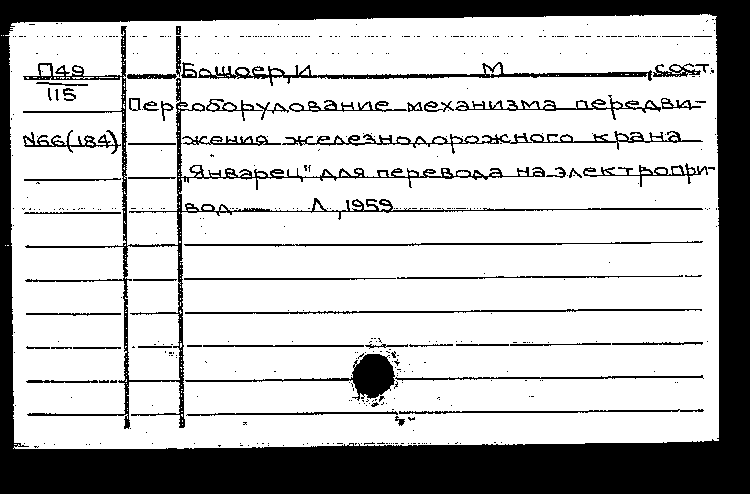 П49 Башоер, И М , сост.
115 Переоборудование механизма передви-
N66(184) жения железнодорожного крана
„Январец" для перевода на электропри-
вод Л, 1959